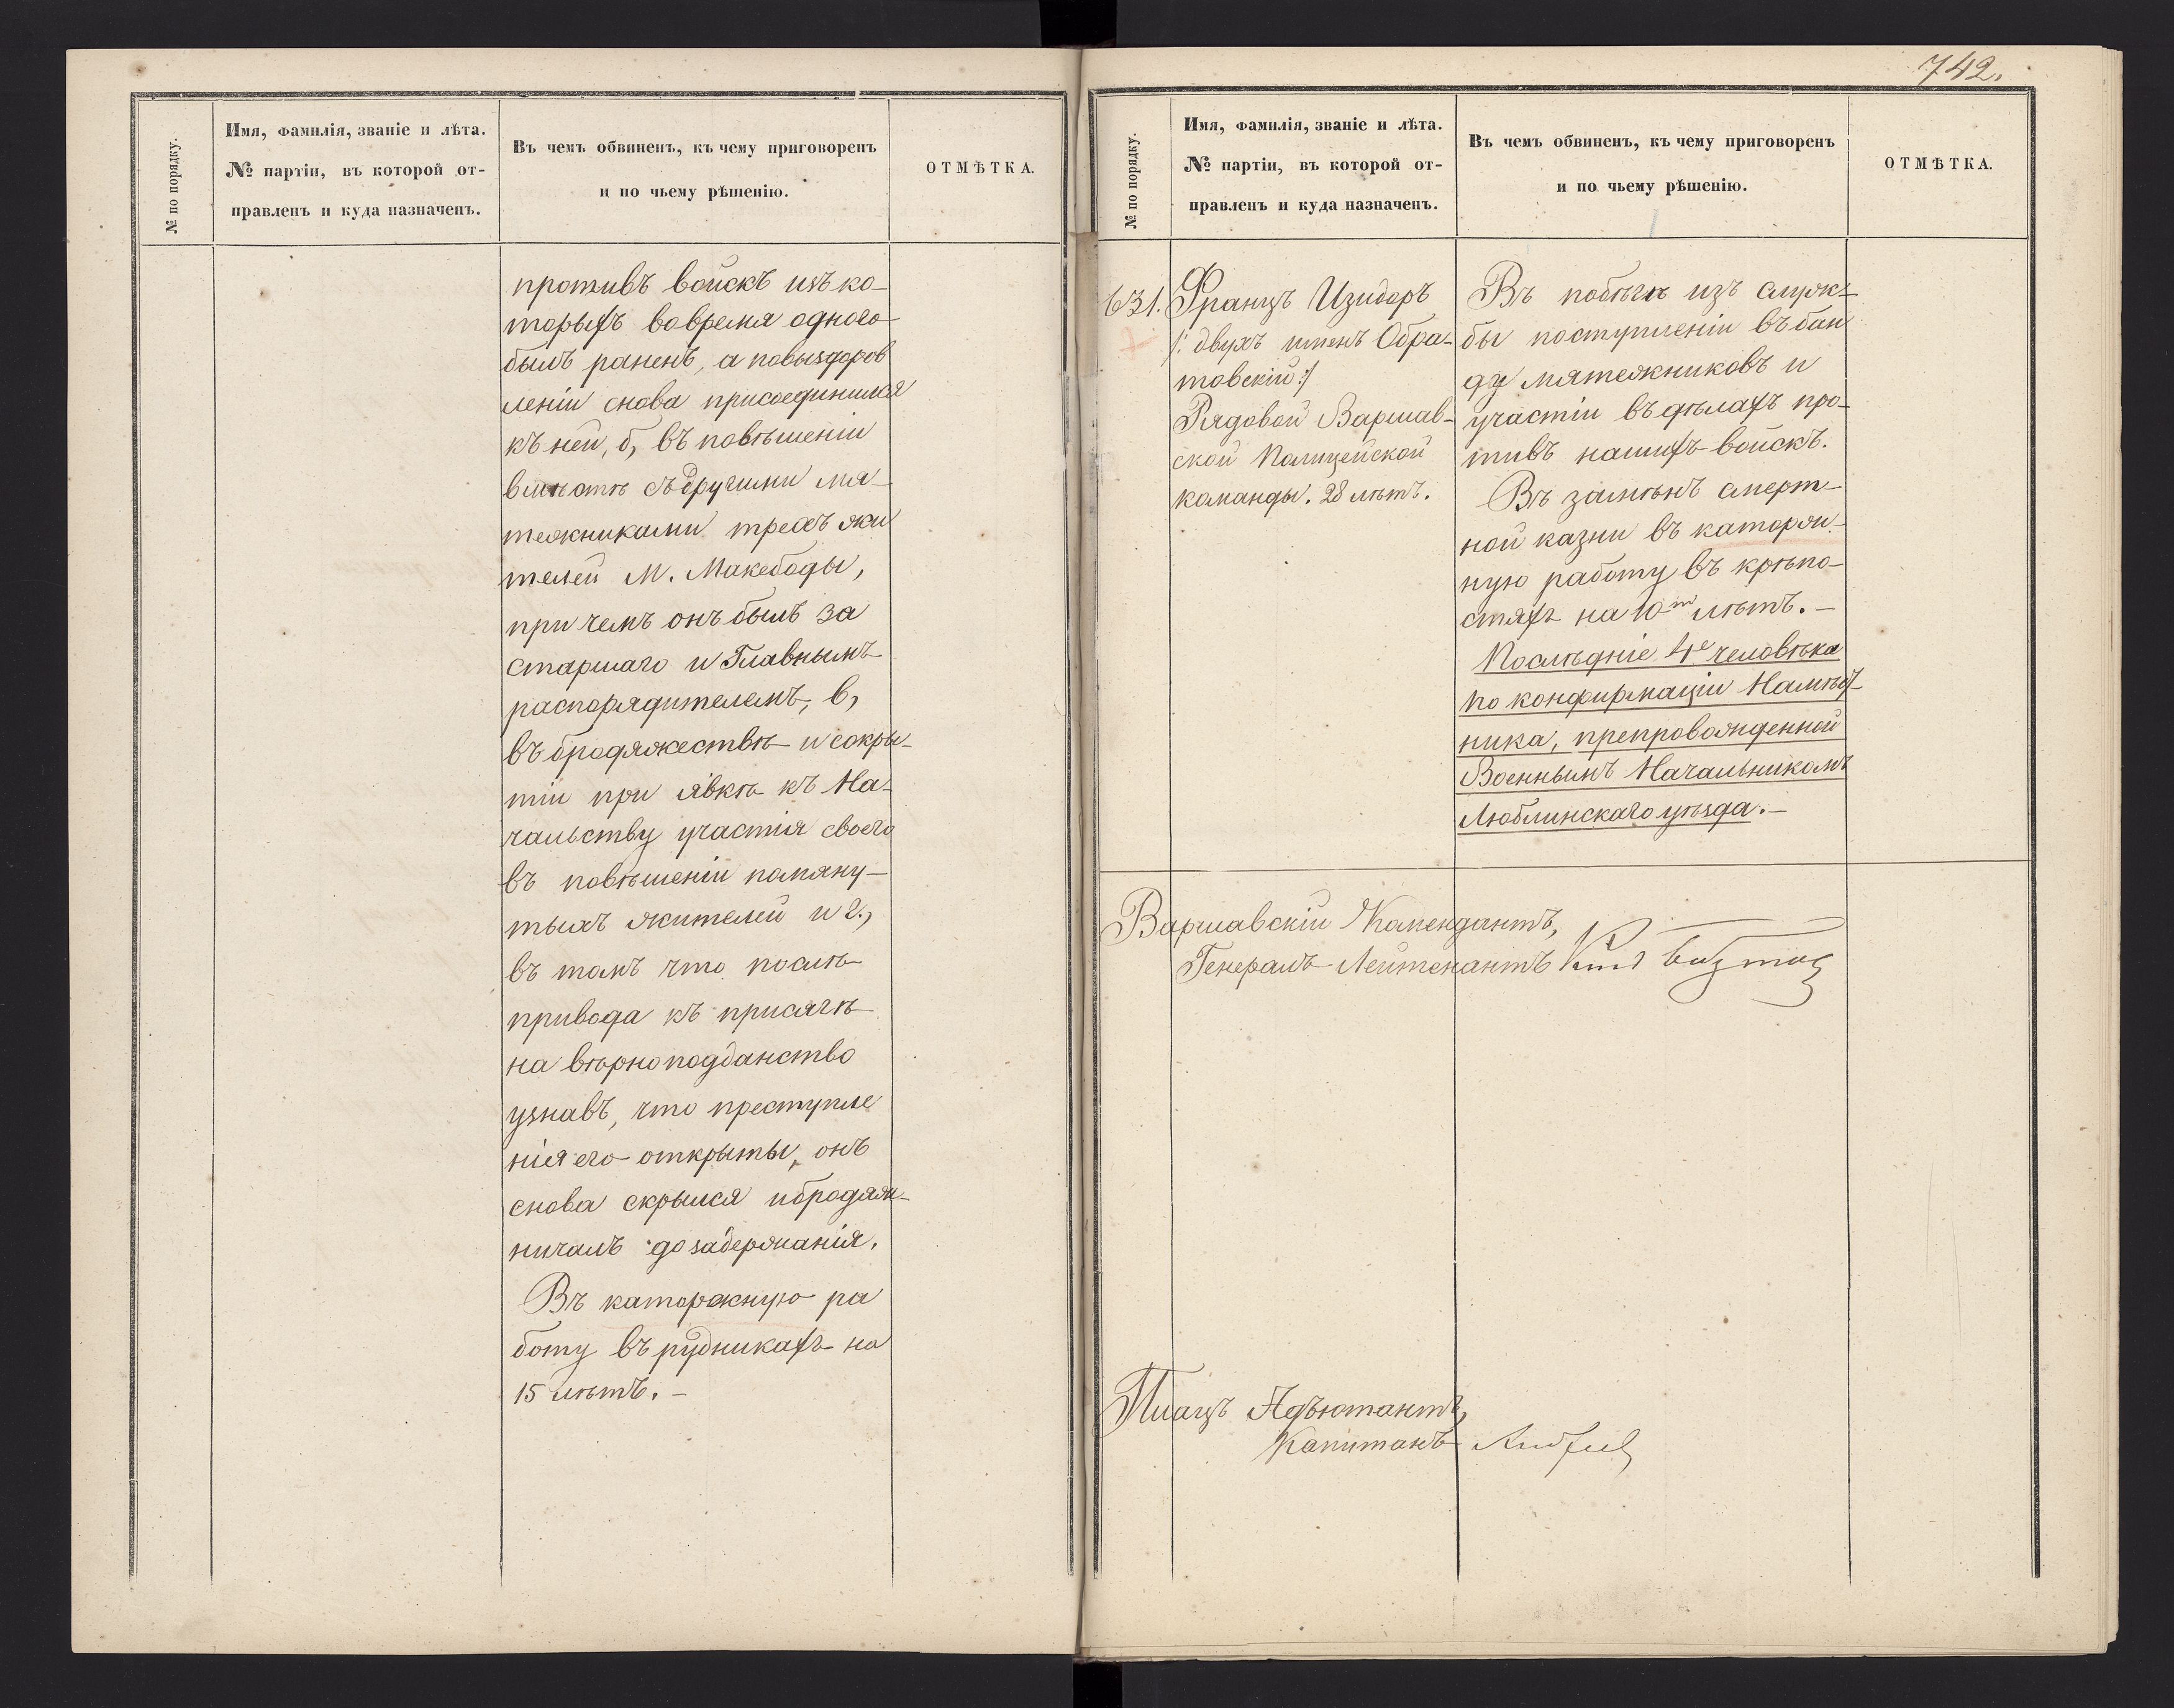 № по порядку.
Имя, фамилія, званіе и лѣта.
№ партіи, въ которой от-
правленъ и куда назначенъ.
Въ чемъ обвиненъ, къ чему приговоренъ
и по чьему рѣшенію.
ОТМѢТКА.
противъ войскъ изъ ко-
торыхъ вовремя одного
былъ раненъ, а повыздоров
леніи снова присоединился
къ ней, б, въ повѣшеніи
вмѣстѣ съ другими мя-
тежниками трехъ жи
телей М. Макободы,
при чемъ онъ былъ за
старшаго и Главнымъ
распорядителемъ, в,
въ бродяжествѣ и сокры-
тіи при явкѣ къ На-
чальству участія своего
въ повѣшеніи помяну-
тыхъ жителей и 2.,
въ томъ что послѣ
привода къ присягѣ
на вѣрноподданство
узнавъ, что преступле
нія его открыты, онъ
снова скрылся и бродяж-
ничалъ до задержанія.
Въ каторжную ра
боту въ рудникахъ на
15 лѣтъ. –
742.
№ по порядку.
Имя, фамилія, званіе и лѣта.
№ партіи, въ которой от-
правленъ и куда назначенъ.
Въ чемъ обвиненъ, къ чему приговоренъ
и по чьему рѣшенію.
ОТМѢТКА.
631.
Францъ Изидоръ
/: двухъ именъ Обра-
товскій :/
Рядовой Варшав-
ской Полицейской
команды. 28 лѣтъ.
Въ побѣгѣ изъ служ-
бы поступленіи въ бан
ду мятежниковъ и
участіи въ дѣлахъ про-
тивъ нашихъ войскъ.
Въ замѣнъ смерт-
ной казни въ каторж-
ную работу въ крѣпо-
стяхъ на 10ть лѣтъ. –
Послѣдніе 4е человѣка
по конфирмаціи Намѣст-
ника, препровожденной
Военнымъ Начальникомъ
Люблинскаго уѣзда. –
Варшавскій Комендантъ,
Генералъ-Лейтенантъ
Плацъ Адъютантъ,
Капитанъ